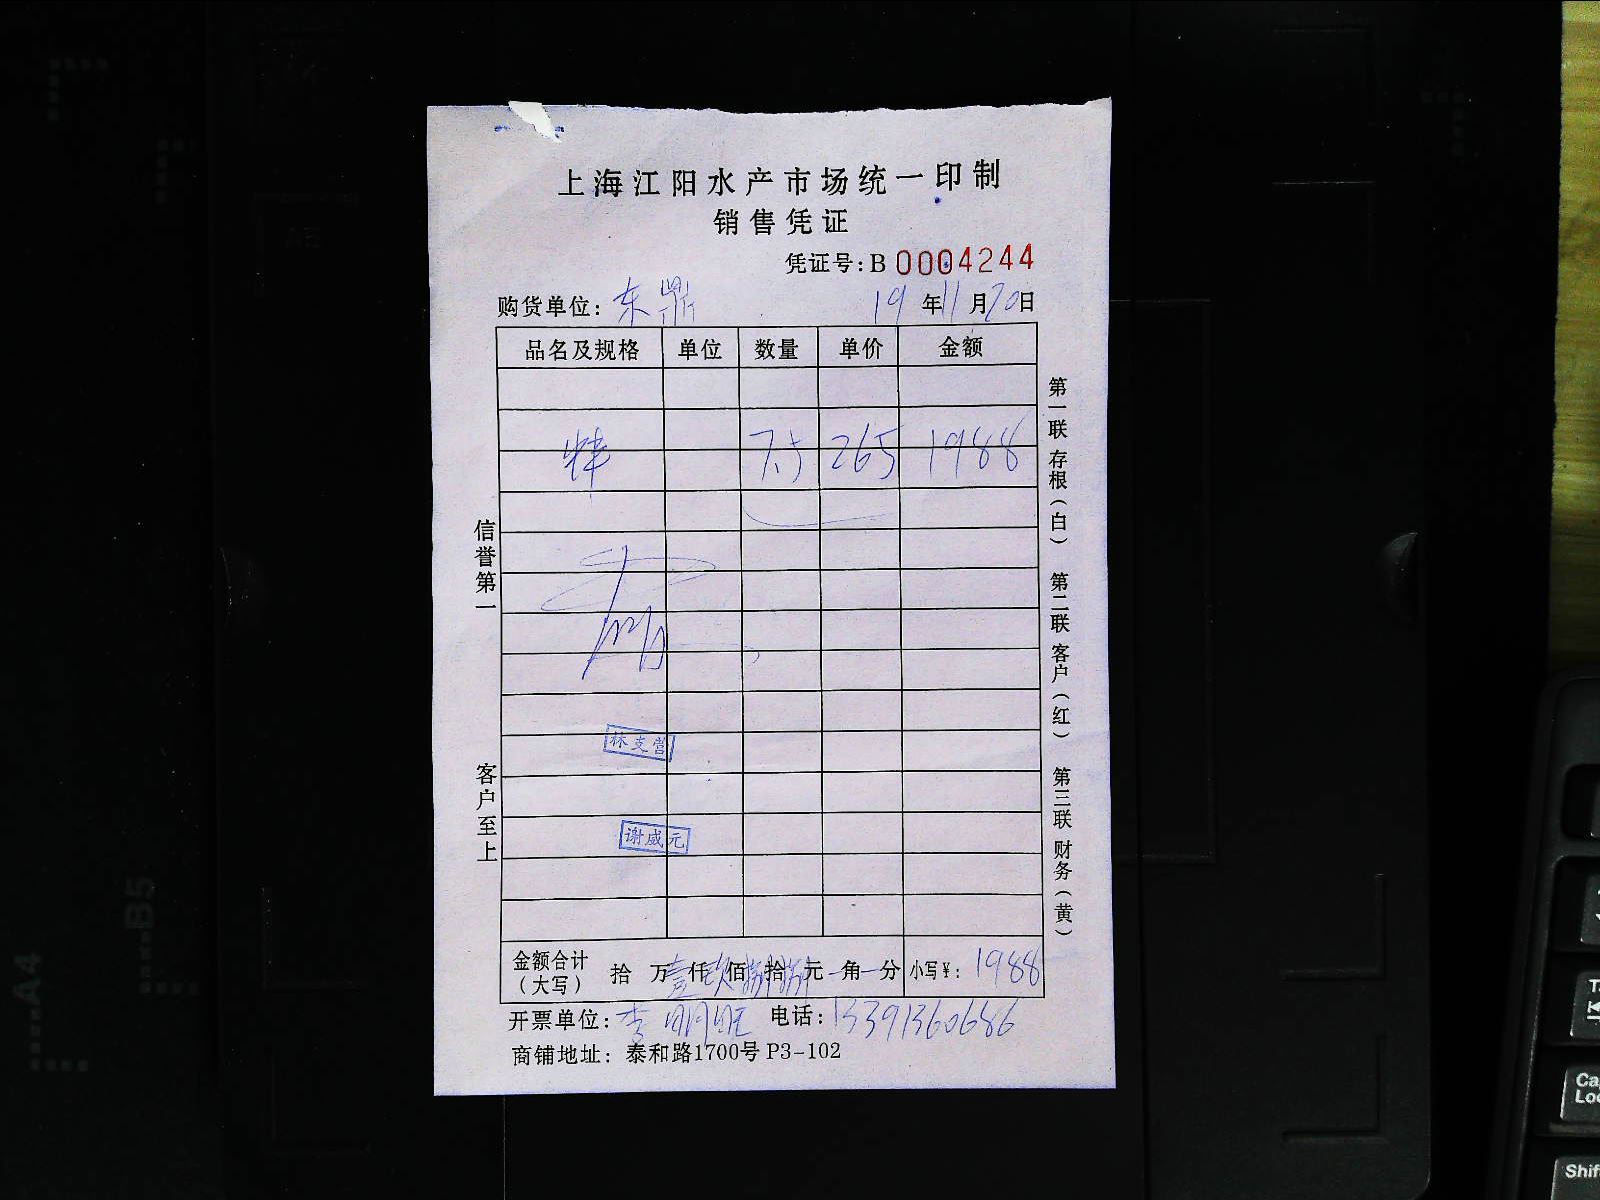 上海江阳水产市场统一印制
销售凭证
凭证号:B 0004244
购货单位: 东鼎 19 年 11 月 20 日
品名及规格 单位 数量 单价 金额
7.5 265 1988
林支营
谢成元
金额合计(大写) 拾 万 壹 仟 玖 佰 捌 拾 捌 元 角 分 小写¥: 1988
开票单位: 李明旺 电话: 13391360686
商铺地址: 泰和路1700号 P3-102
信誉第一 客户至上
第一联 存根(白) 第二联 客户(红) 第三联 财务(黄)
A4
B5
A5
Shif